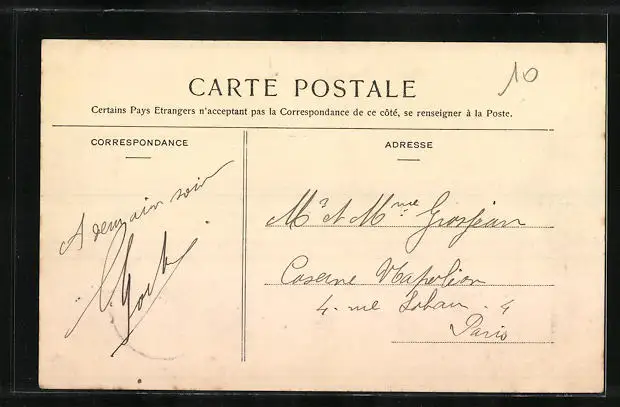 10
CARTE POSTALE
Certains Pays Etrangers n'acceptant pas la Correspondance de ce côté, se renseigner à la Poste.
CORRESPONDANCE
A demain soir
ADRESSE
Mr et Mme Grosjean
Caserne Napoléon
4 - rue Lobau - 4
Paris